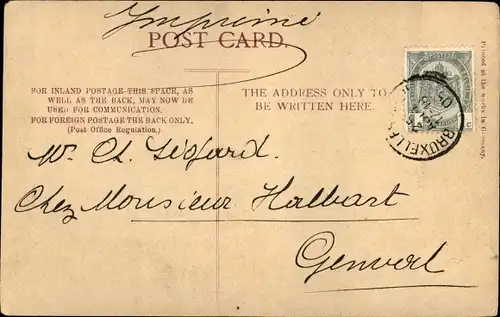 Imprimé
POST CARD.
FOR INLAND POSTAGE THIS SPACE, AS
WELL AS THE BACK, MAY NOW BE
USED FOR COMMUNICATION.
FOR FOREIGN POSTAGE THE BACK ONLY.
(Post Office Regulation.)
THE ADDRESS ONLY TO
BE WRITTEN HERE.
Printed at the works in Germany.
BRUXELLES
Mr. Ch.
Chez Monsieur Halbart
Genval